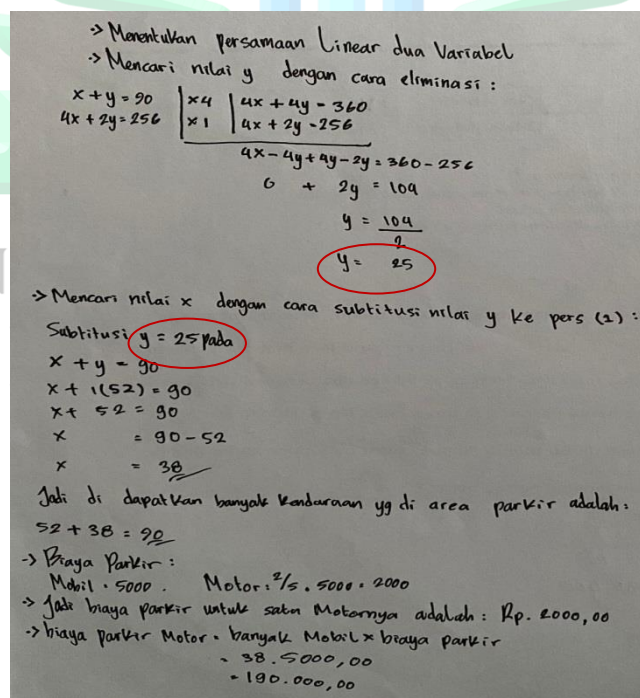 -> Menentukan persamaan Linear dua Variabel
-> Mencari nilai y dengan cara eliminasi :
x + y = 90 | x4 | 4x + 4y = 360
4x + 2y = 256 | x1 | 4x + 2y = 256
4x - 4y + 4y - 2y = 360 - 256
0 + 2y = 104
y = 104
2
y = 25
-> Mencari nilai x dengan cara subtitusi nilai y ke pers (2) :
Subtitusi y = 25 pada
x + y = 90
x + 1(52) = 90
x + 52 = 90
x = 90 - 52
x = 38
Jadi di dapatkan banyak kendaraan yg di area parkir adalah :
52 + 38 = 90
-> Biaya Parkir :
Mobil = 5000. Motor : 2/5 . 5000 = 2000
-> Jadi biaya parkir untuk satu Motornya adalah : Rp. 2000,00
-> biaya parkir Motor = banyak Mobil x biaya parkir
= 38 . 5000,00
= 190.000,00